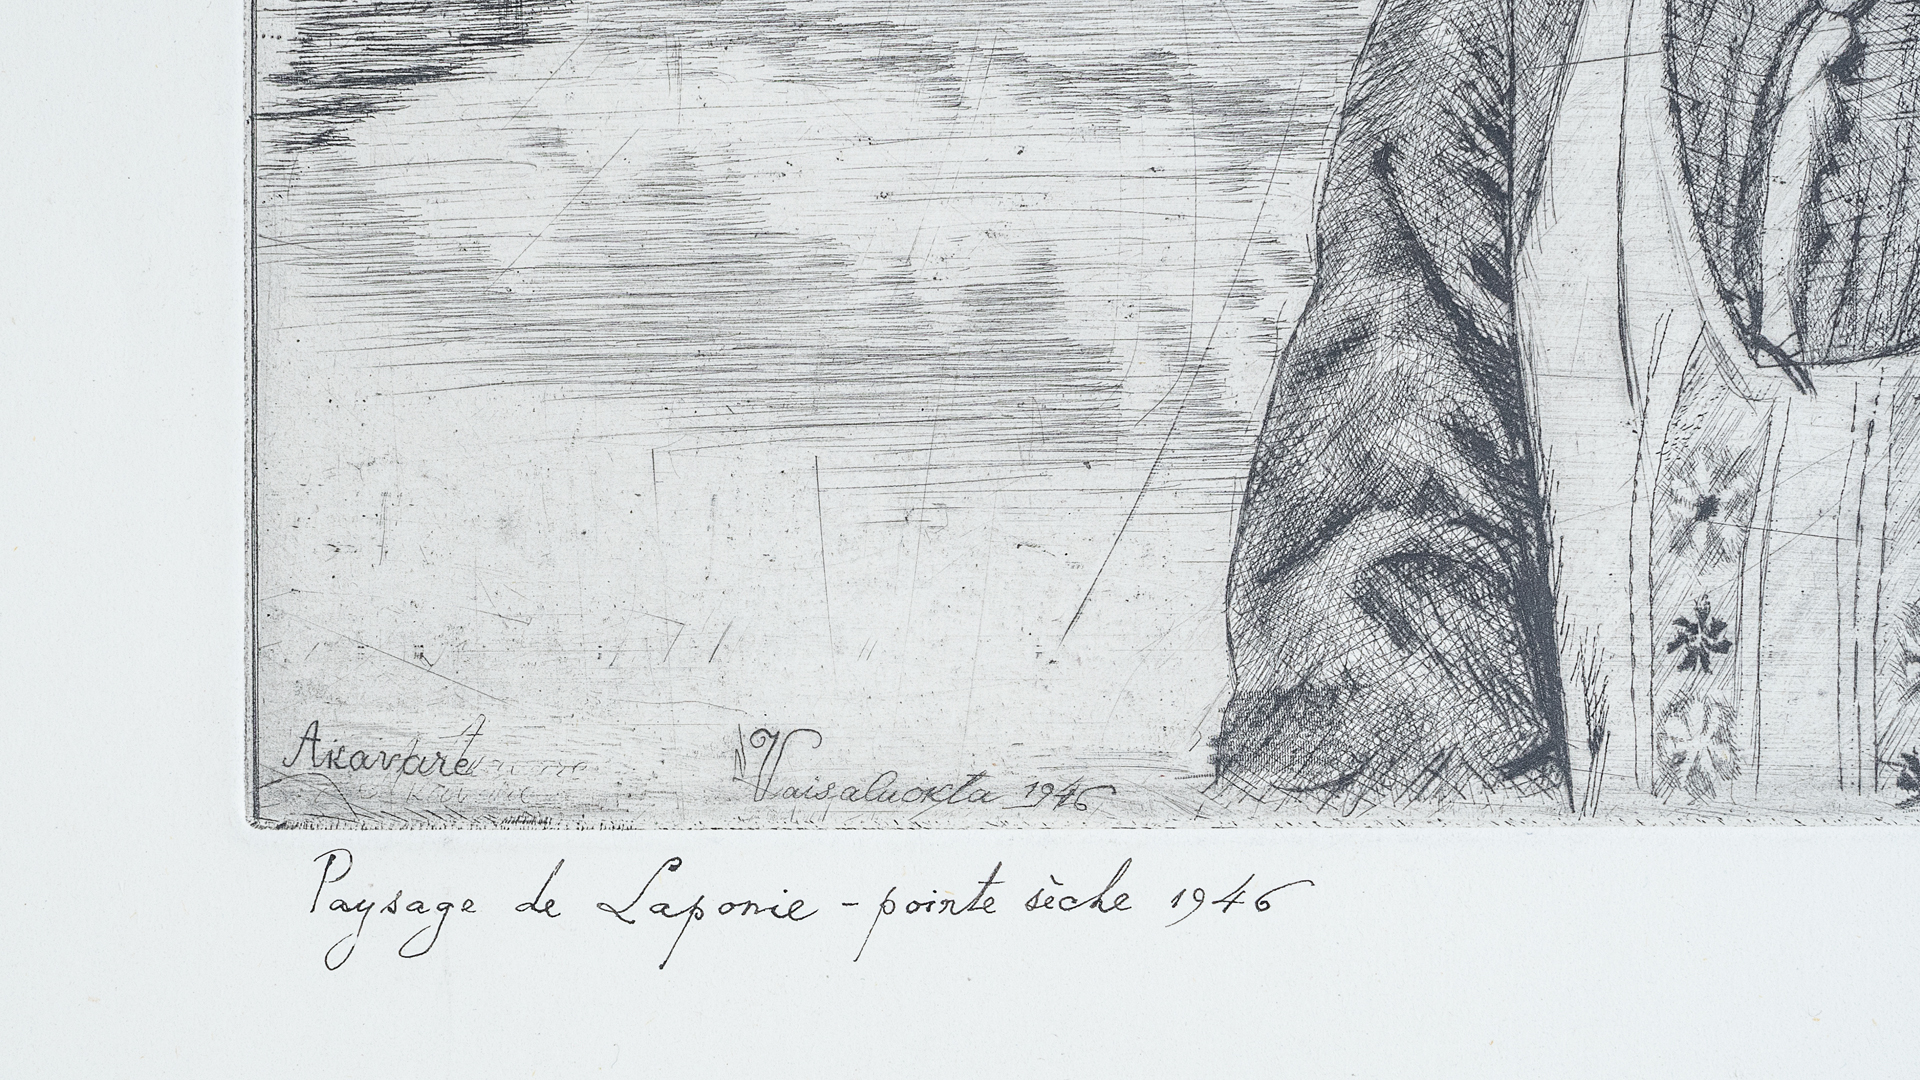 Akavare
Vaisaluokta 1946
Paysage de Laponie - pointe sèche 1946